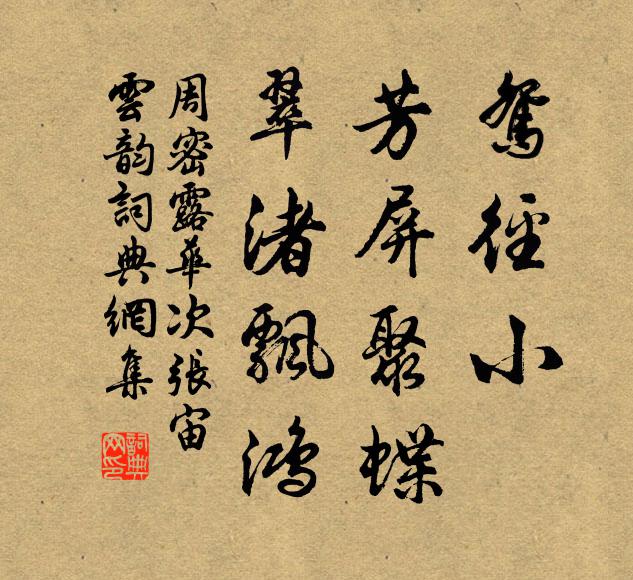 鴛徑小
芳屏聚蝶
翠渚飄鴻
周密露華次張宙
雲韵詞典網集
詞典网印